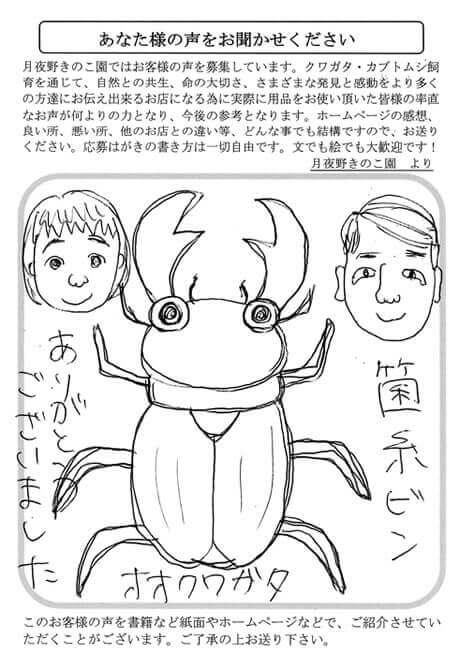 あなた様の声をお聞かせください
月夜野きのこ園ではお客様の声を募集しています。クワガタ・カブトムシ飼
育を通じて、自然との共生、命の大切さ、さまざまな発見と感動をより多く
の方達にお伝え出来るお店になる為に実際に用品をお使い頂いた皆様の率直
なお声が何よりの力となり、今後の参考となります。ホームページの感想、
良い所、悪い所、他のお店との違い等、どんな事でも結構ですので、お送り
ください。応募はがきの書き方は一切自由です。文でも絵でも大歓迎です！
月夜野きのこ園　より
菌糸ビン
ありがとう
ございました
オオクワガタ
このお客様の声を書籍など紙面やホームページなどで、ご紹介させてい
ただくことがございます。ご了承の上お送り下さい。